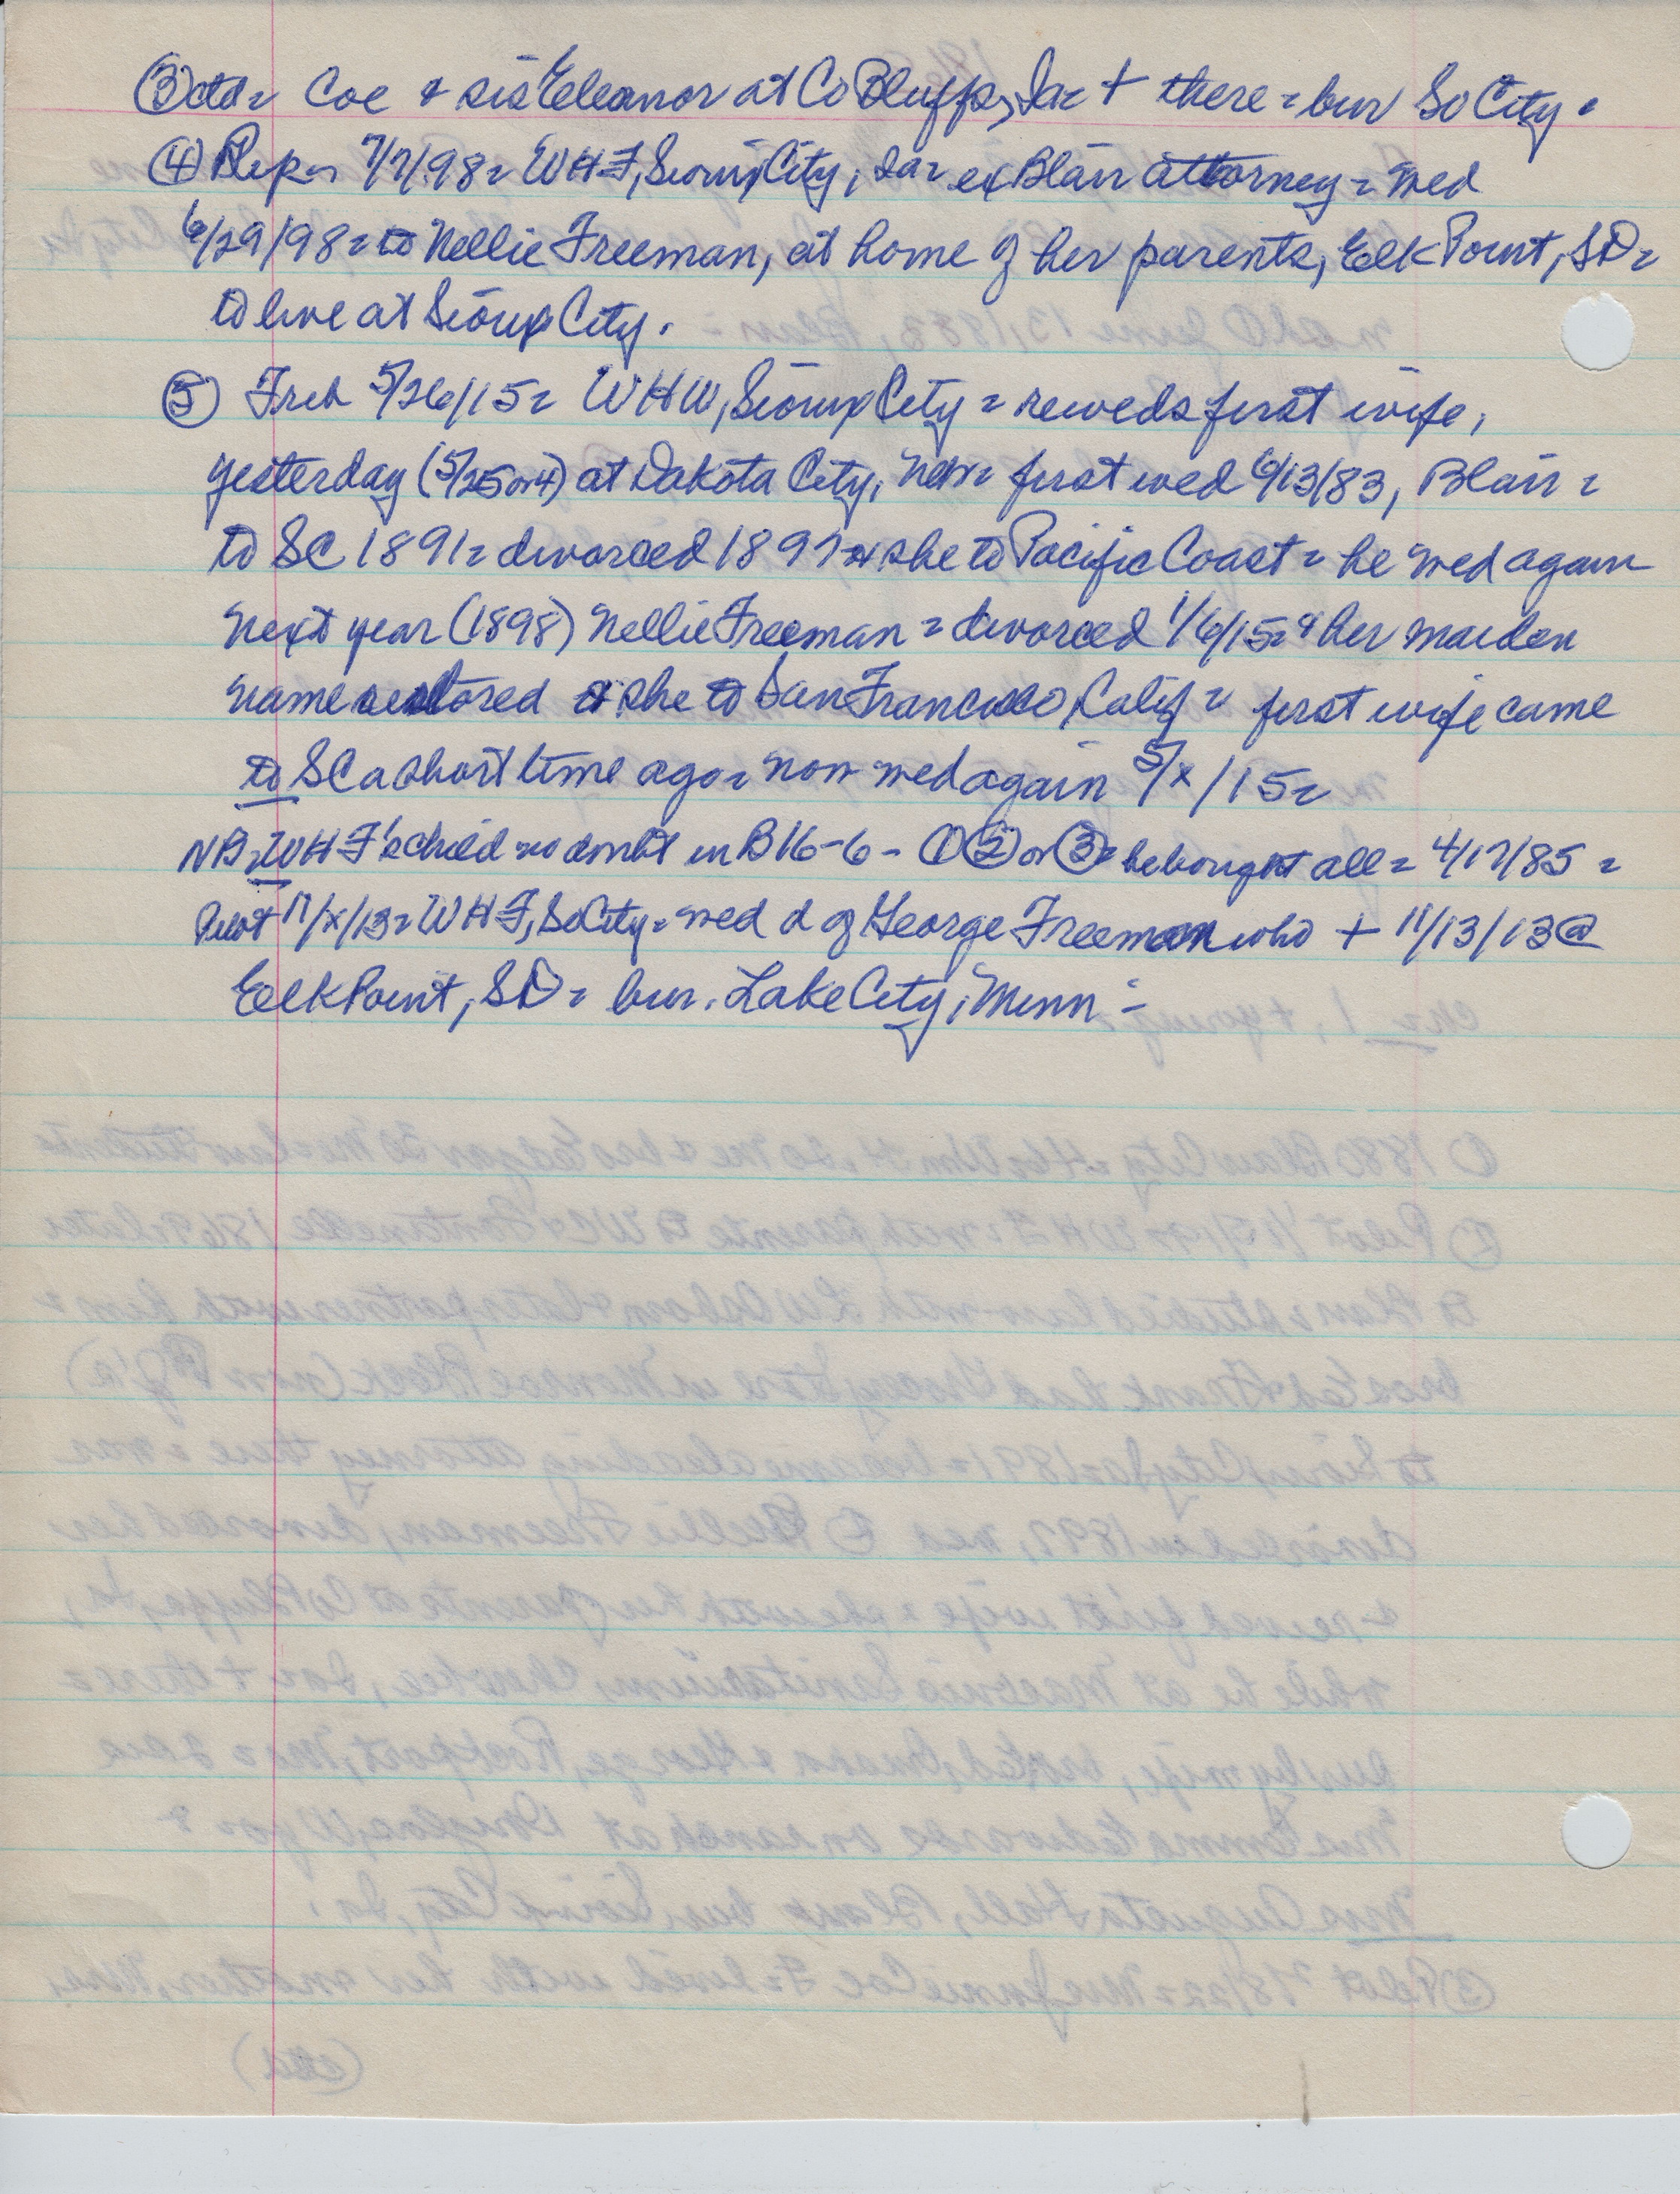 ③ ctd = Coe & sis Eleanor at Co Bluffs, Ia = + there = bur So City.
④ Repn 7/7/98 = WHF, Sioux City, Ia = ex Blair attorney = med
6/29/98 = to Nellie Freeman, at home of her parents, Elk Point, SD =
to live at Sioux City.
⑤ Trib 5/26/15 = WHW, Sioux City = reweds first wife,
yesterday (5/25 or 4) at Dakota City, Neb = first wed 6/13/83, Blair =
to SC 1891 = divorced 1897 & she to Pacific Coast = he med again
next year (1898) Nellie Freeman = divorced 1/6/15 = & her maiden
name restored & she to San Francisco, Calif = first wife came
to SC a short time ago = now med again 5/x/15 =
NB = WHF's child no doubt in B16-6- ① ② or ③ = he bought all = 4/17/85 =
Pilot 11/x/13 = WHF, So City = med d of George Freeman who + 11/13/13 @
Elk Point, SD = bur. Lake City, Minn =